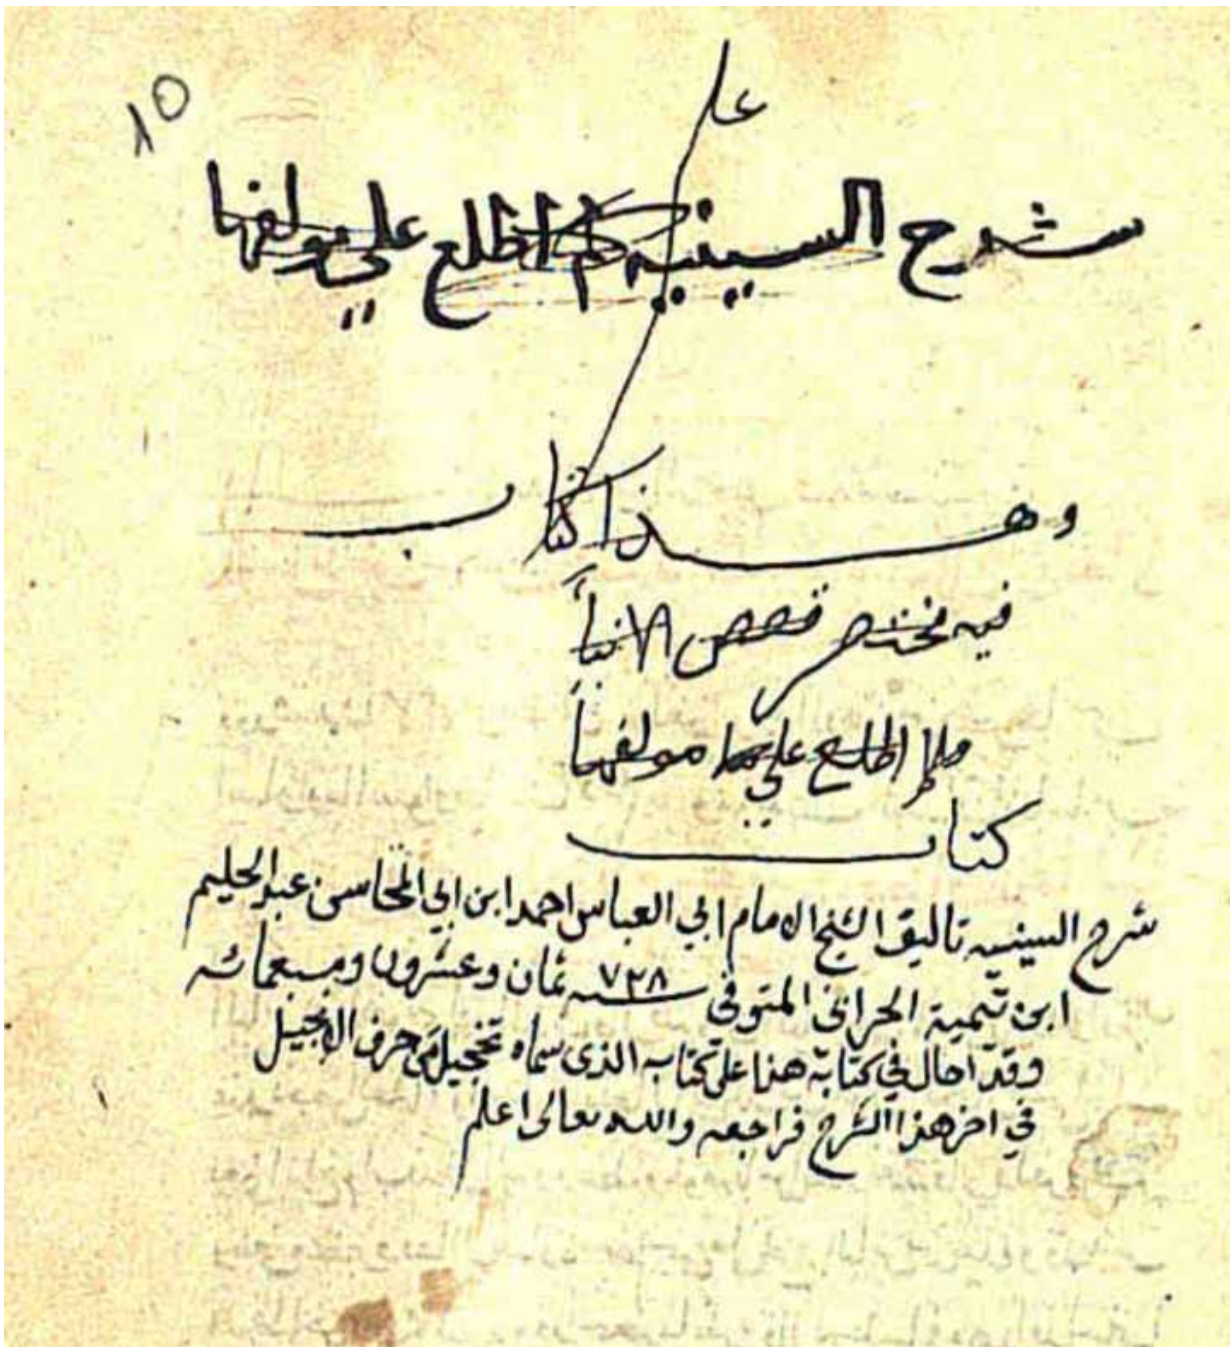 ١٥
علـ
شرح السينيه لم اطلع علي مولفها
وهـــذا كتاب
فيه مختصر قصص الانبيآ
ولم اطلع علي مولفها
كتاب
شرح السينيه تاليف الشيخ الامام ابي العباس احمد ابن ابي المحاسن عبد الحليم
ابن تيمية الحراني المتوفى سنه ٧٢٨ ثمان وعشرون وسبعمائه
وقد احال في كتابه هذا على كتابه الذى سماه تخجيل من حرف الانجيل
في اخر هذا الشرح فراجعه والله تعالى اعلم